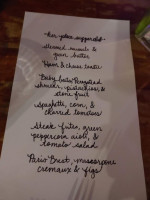 steamed mussels &
butter
Ham & cheese toastie
Baby beets,
shmear, pistachios, &
stone fruit
Spaghetti, corn, &
charred tomatoes
Steak frites, green
peppercorn aioli, &
tomato salad
Paris Brest, mascarpone
cremaux & figs